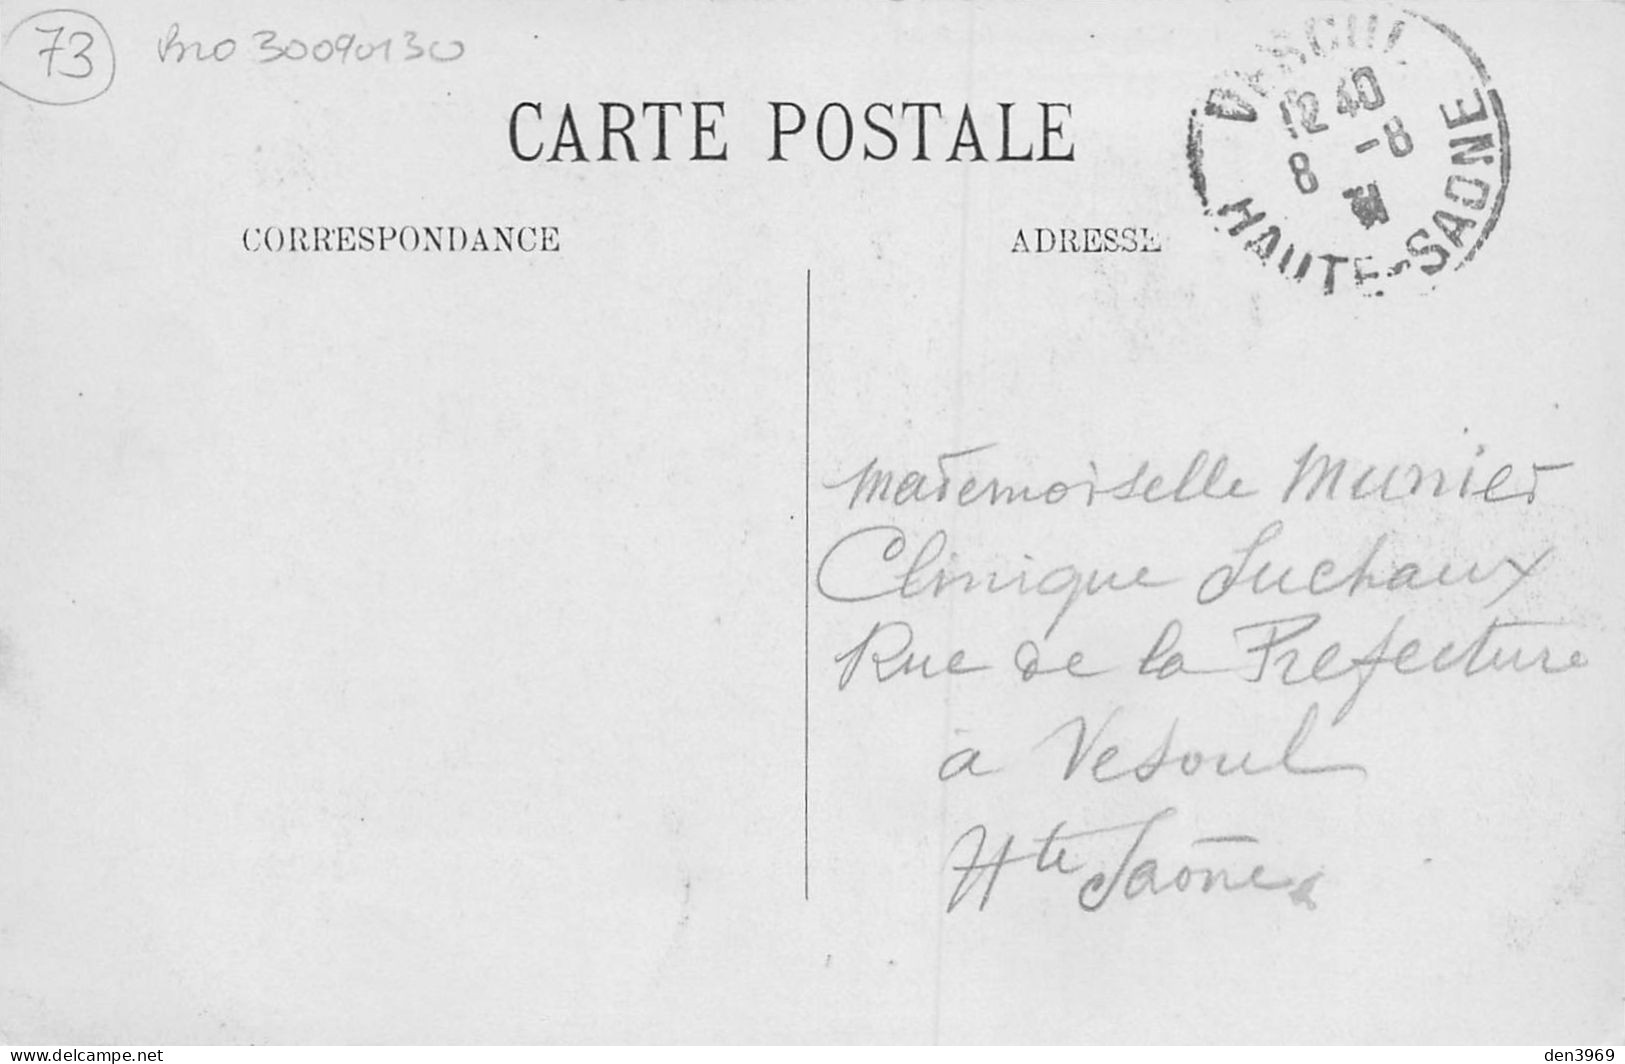 73
30090130
CARTE POSTALE
12 40
8 -8
HAUTE-SAONE
CORRESPONDANCE
ADRESSE
Mademoiselle Munier
Clinique Luchaux
Rue de la Prefecture
a Vesoul
Hte Saône
www.delcampe.net
den3969